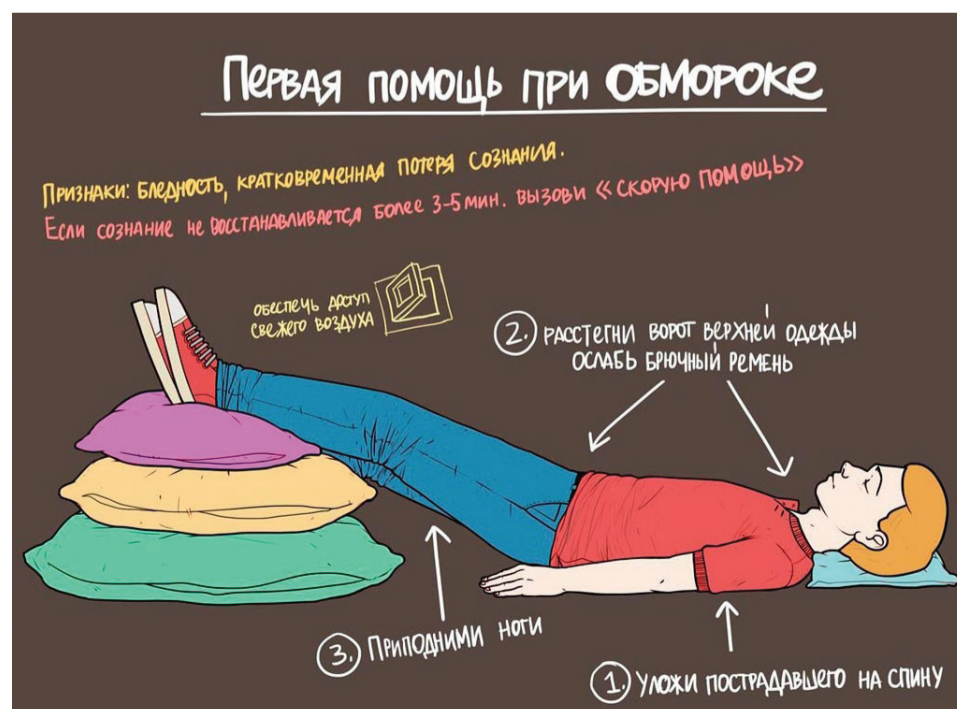 Первая помощь при ОБМОРОКЕ
Признаки: бледность, кратковременная потеря сознания.
Если сознание не восстанавливается более 3-5 мин. вызови «скорую помощь»
обеспечь доступ
свежего воздуха
2. Расстегни ворот верхней одежды
ослабь брючный ремень
3. Приподними ноги
1. Уложи пострадавшего на спину